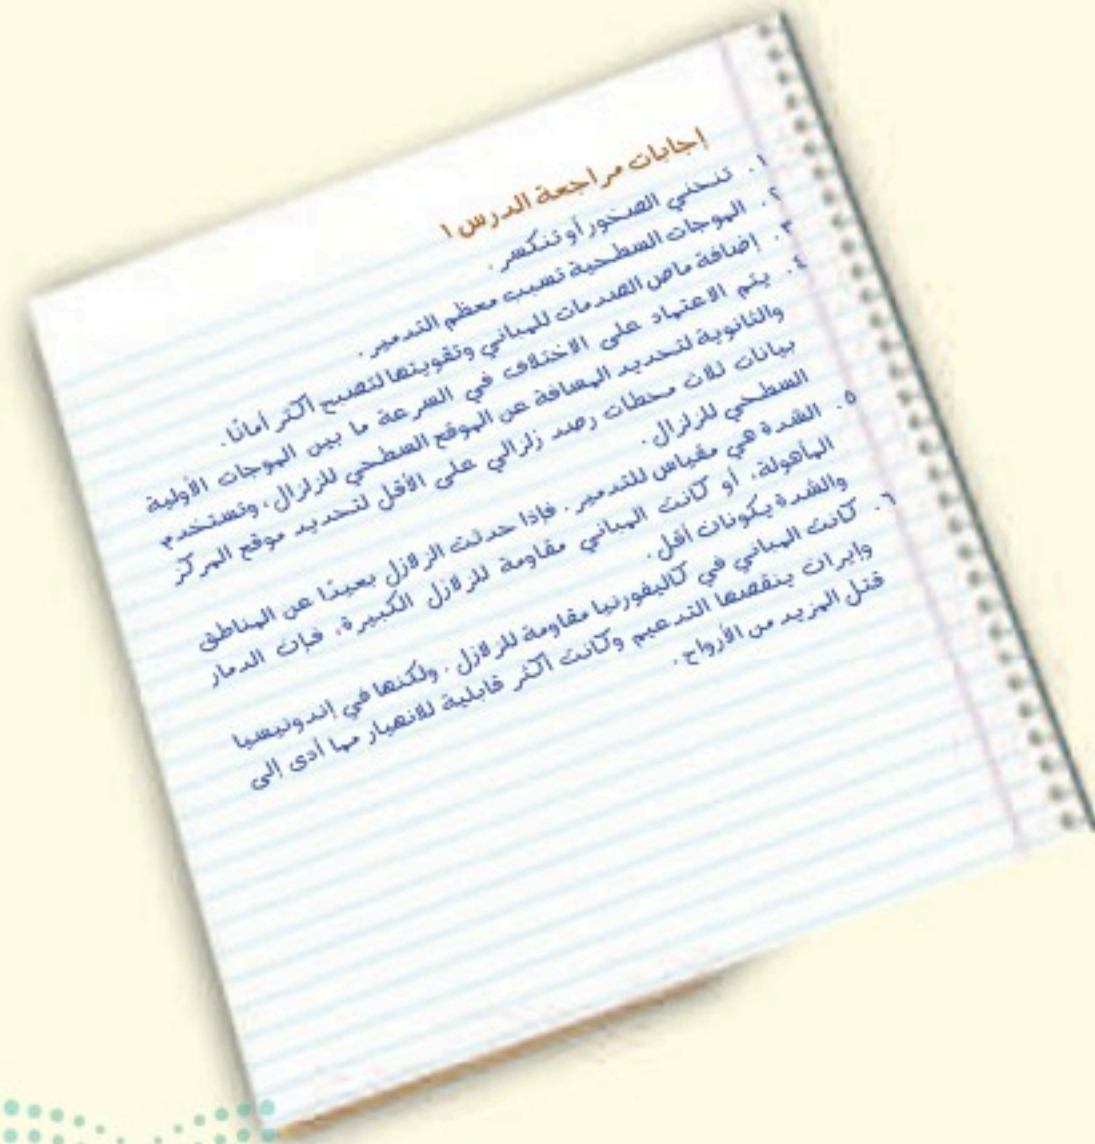 إجابات مراجعة الدرس ١
١. تنحني الصخور أو تنكسر.
٢. الموجات السطحية تسبب معظم التدمير.
٣. إضافة ماص الصدمات للمباني وتقويتها لتصبح أكثر أمانًا.
٤. يتم الاعتماد على الاختلاف في السرعة ما بين الموجات الأولية
والثانوية لتحديد المسافة عن الموقع السطحي للزلزال، وتستخدم
بيانات ثلاث محطات رصد زلزالي على الأقل لتحديد موقع المركز
السطحي للزلزال.
٥. الشدة هي مقياس للتدمير. فإذا حدثت الزلازل بعيدًا عن المناطق
المأهولة، أو كانت المباني مقاومة للزلازل الكبيرة، فإن الدمار
والشدة يكونان أقل.
٦. كانت المباني في كاليفورنيا مقاومة للزلازل. ولكنها في إندونيسيا
وإيران ينقصها التدعيم وكانت أكثر قابلية للانهيار مما أدى إلى
قتل المزيد من الأرواح.